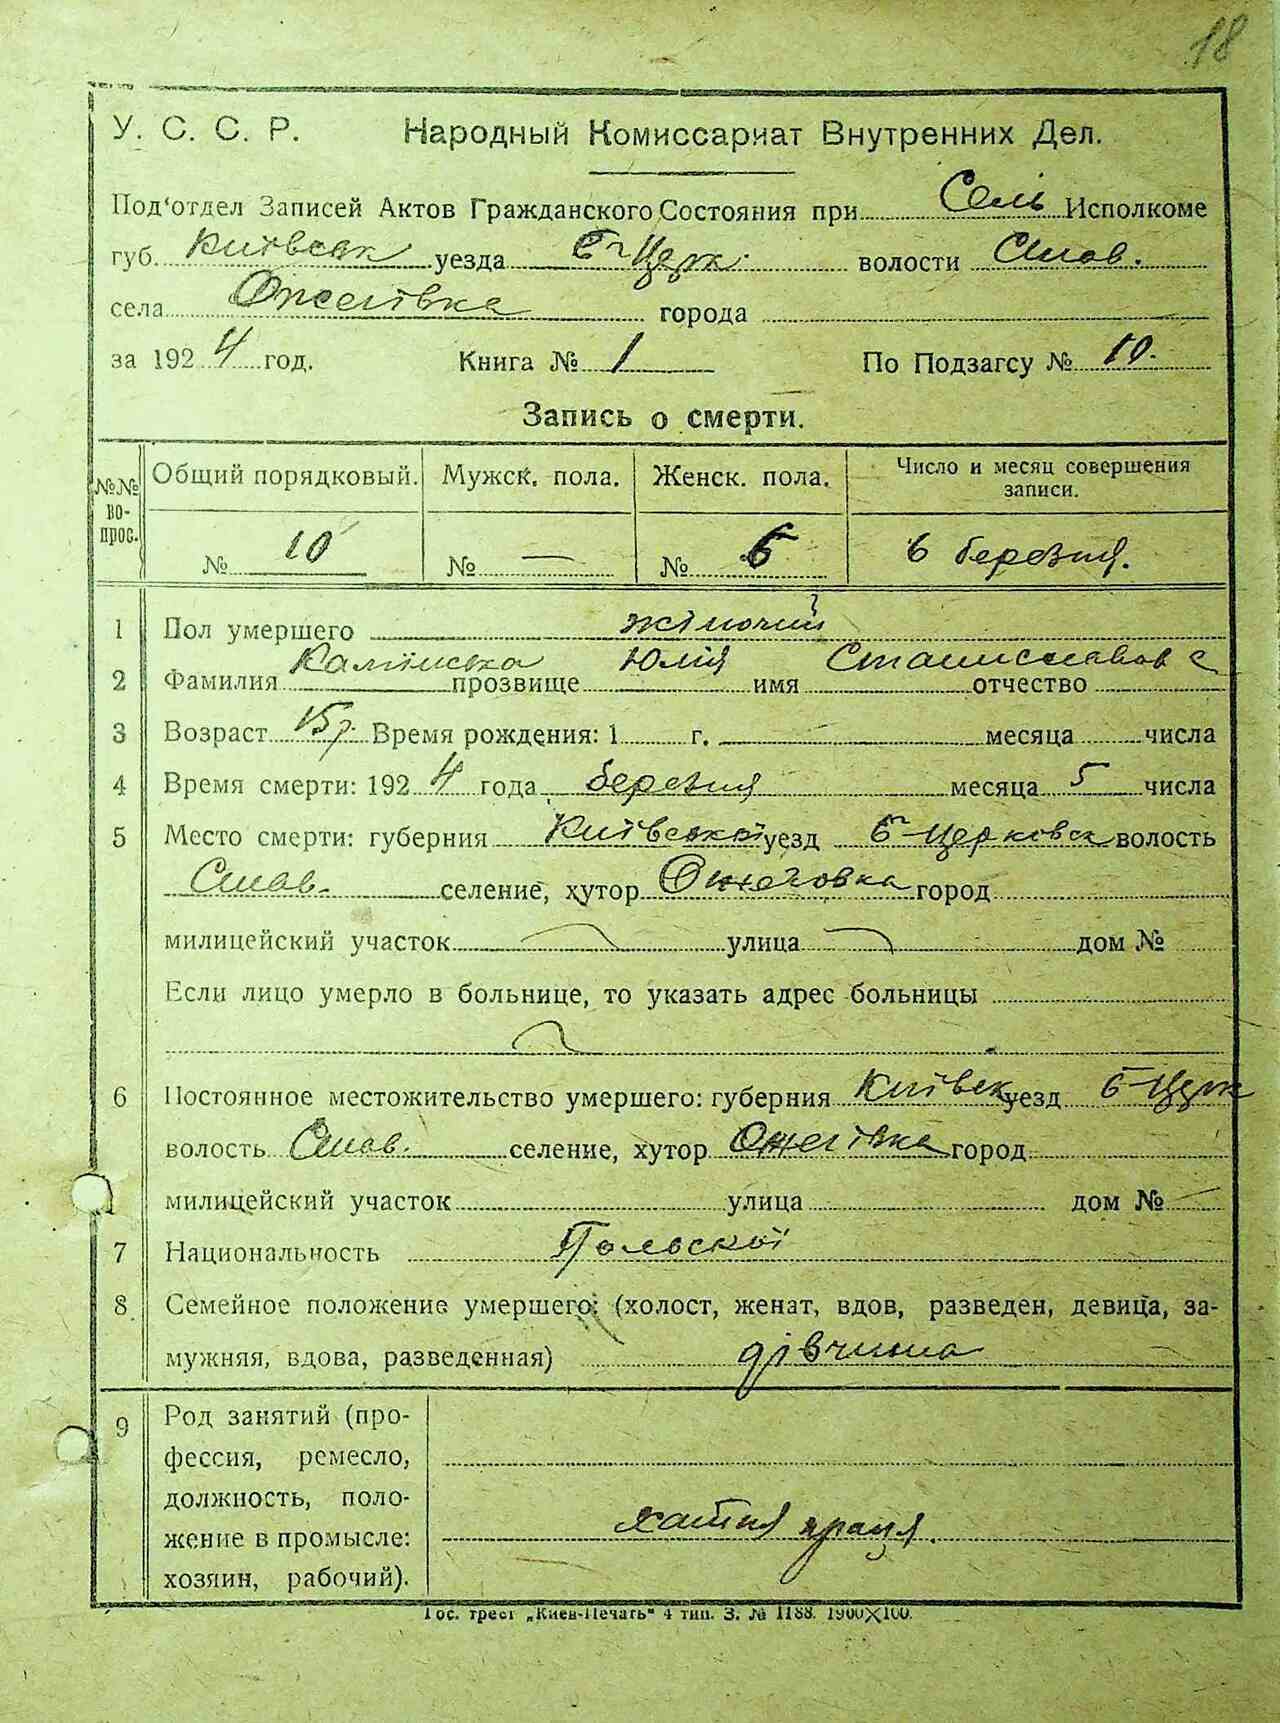 18
У. С. С. Р. Народный Комиссариат Внутренних Дел.
Под‘отдел Записей Актов Гражданского Состояния при Сель Исполкоме
губ. Київськ уезда Б-Церк. волости Став.
села Ожегівка города
за 1924 год. Книга № 1 По Подзагсу № 10.
Запись о смерти.
№№ вопрос. Общий порядковый. Мужск. пола. Женск. пола. Число и месяц совершения записи.
№ 10 № — № 6 6 березня.
1 Пол умершего жіночий
2 Фамилия Камінська прозвище имя Юлія отчество Станиславов
3 Возраст 15 р. Время рождения: 1 г. месяца числа
4 Время смерти: 1924 года березня месяца 5 числа
5 Место смерти: губерния Київської уезд Б-Церковськ волость
Став. селение, хутор Ожоговка город
милицейский участок улица дом №
Если лицо умерло в больнице, то указать адрес больницы
6 Постоянное местожительство умершего: губерния Київськ уезд Б-Церк
волость Став. селение, хутор Ожегівка город
милицейский участок улица дом №
7 Национальность Польської
8 Семейное положение умершего: (холост, женат, вдов, разведен, девица, за-
мужняя, вдова, разведенная) дівчина
9 Род занятий (про-
фессия, ремесло,
должность, поло-
жение в промысле:
хозяин, рабочий).
хатня праця.
Гос. трест „Киев-Печать“ 4 тип. З. № 1188. 1900×100.